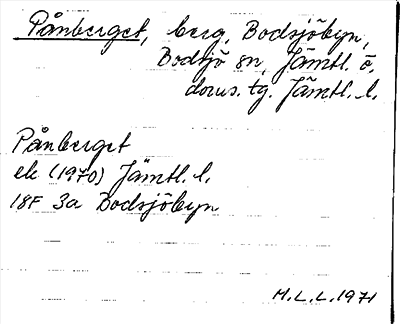 Pånberget, berg, Bodsjöbyn,
Bodsjö sn, Jämtl. ö.
doms. tg. Jämtl. l.
Pånberget
ek (1970) Jämtl. l.
18F 3a Bodsjöbyn
M.L.L. 1971